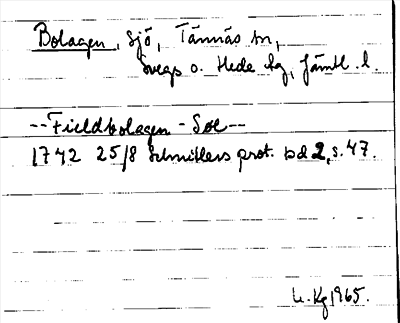 Bolagen, sjö, Tännäs sn,
Svegs o. Hede tg, Jämtl. l.
--Fieldbolagen-Soe--
1742 25/8 Schnitlers prot. bd 2, s. 47.
U. Kg 1965.